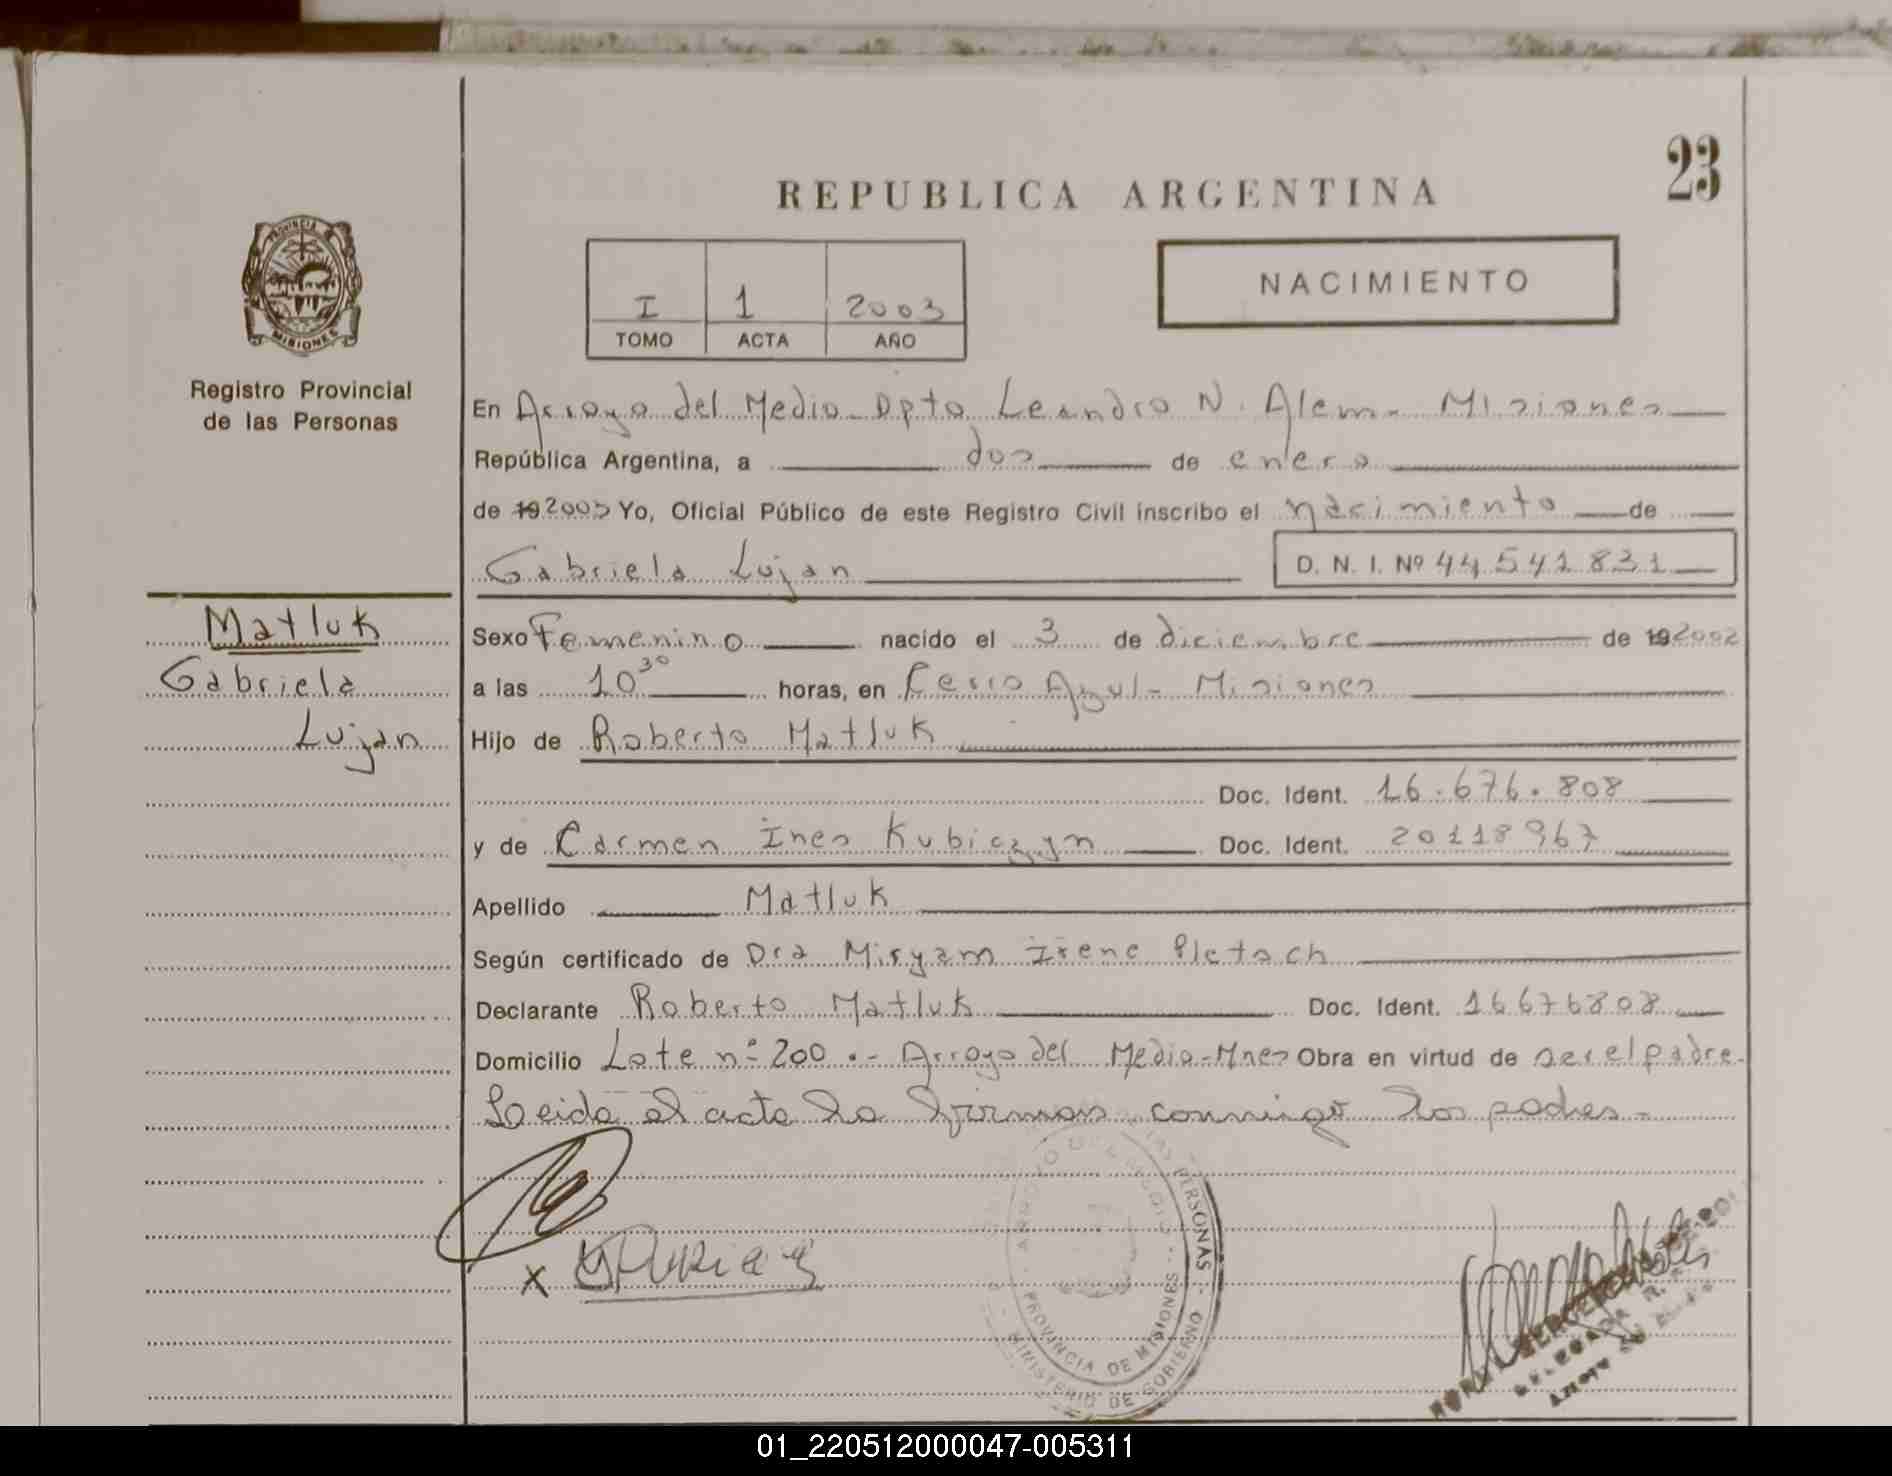 23
REPUBLICA ARGENTINA
PROVINCIA DE
MISIONES
Registro Provincial
de las Personas
I 1 2003
TOMO ACTA AÑO
NACIMIENTO
En Arroyo del Medio - Dpto Leandro N. Alem - Misiones
República Argentina, a dos de enero
de 19 2003 Yo, Oficial Público de este Registro Civil inscribo el nacimiento de
Gabriela Lujan D. N. I. Nº 44 541 831
Matluk
Gabriela
Lujan
Sexo Femenino nacido el 3 de diciembre de 19 2002
a las 10 30 horas, en Cerro Azul - Misiones
Hijo de Roberto Matluk
Doc. Ident. 16.676.808
y de Carmen Ines Kubiczyn Doc. Ident. 20118967
Apellido Matluk
Según certificado de Dra Miryam Irene Pletsch
Declarante Roberto Matluk Doc. Ident. 16676808
Domicilio Lote nº 200 .- Arroyo del Medio - Mnes Obra en virtud de ser el padre.
Leida el acta la firman conmigo los padres -
X
PERSONAS
PROVINCIA DE MISIONES
MINISTERIO DE GOBIERNO
01_220512000047-005311